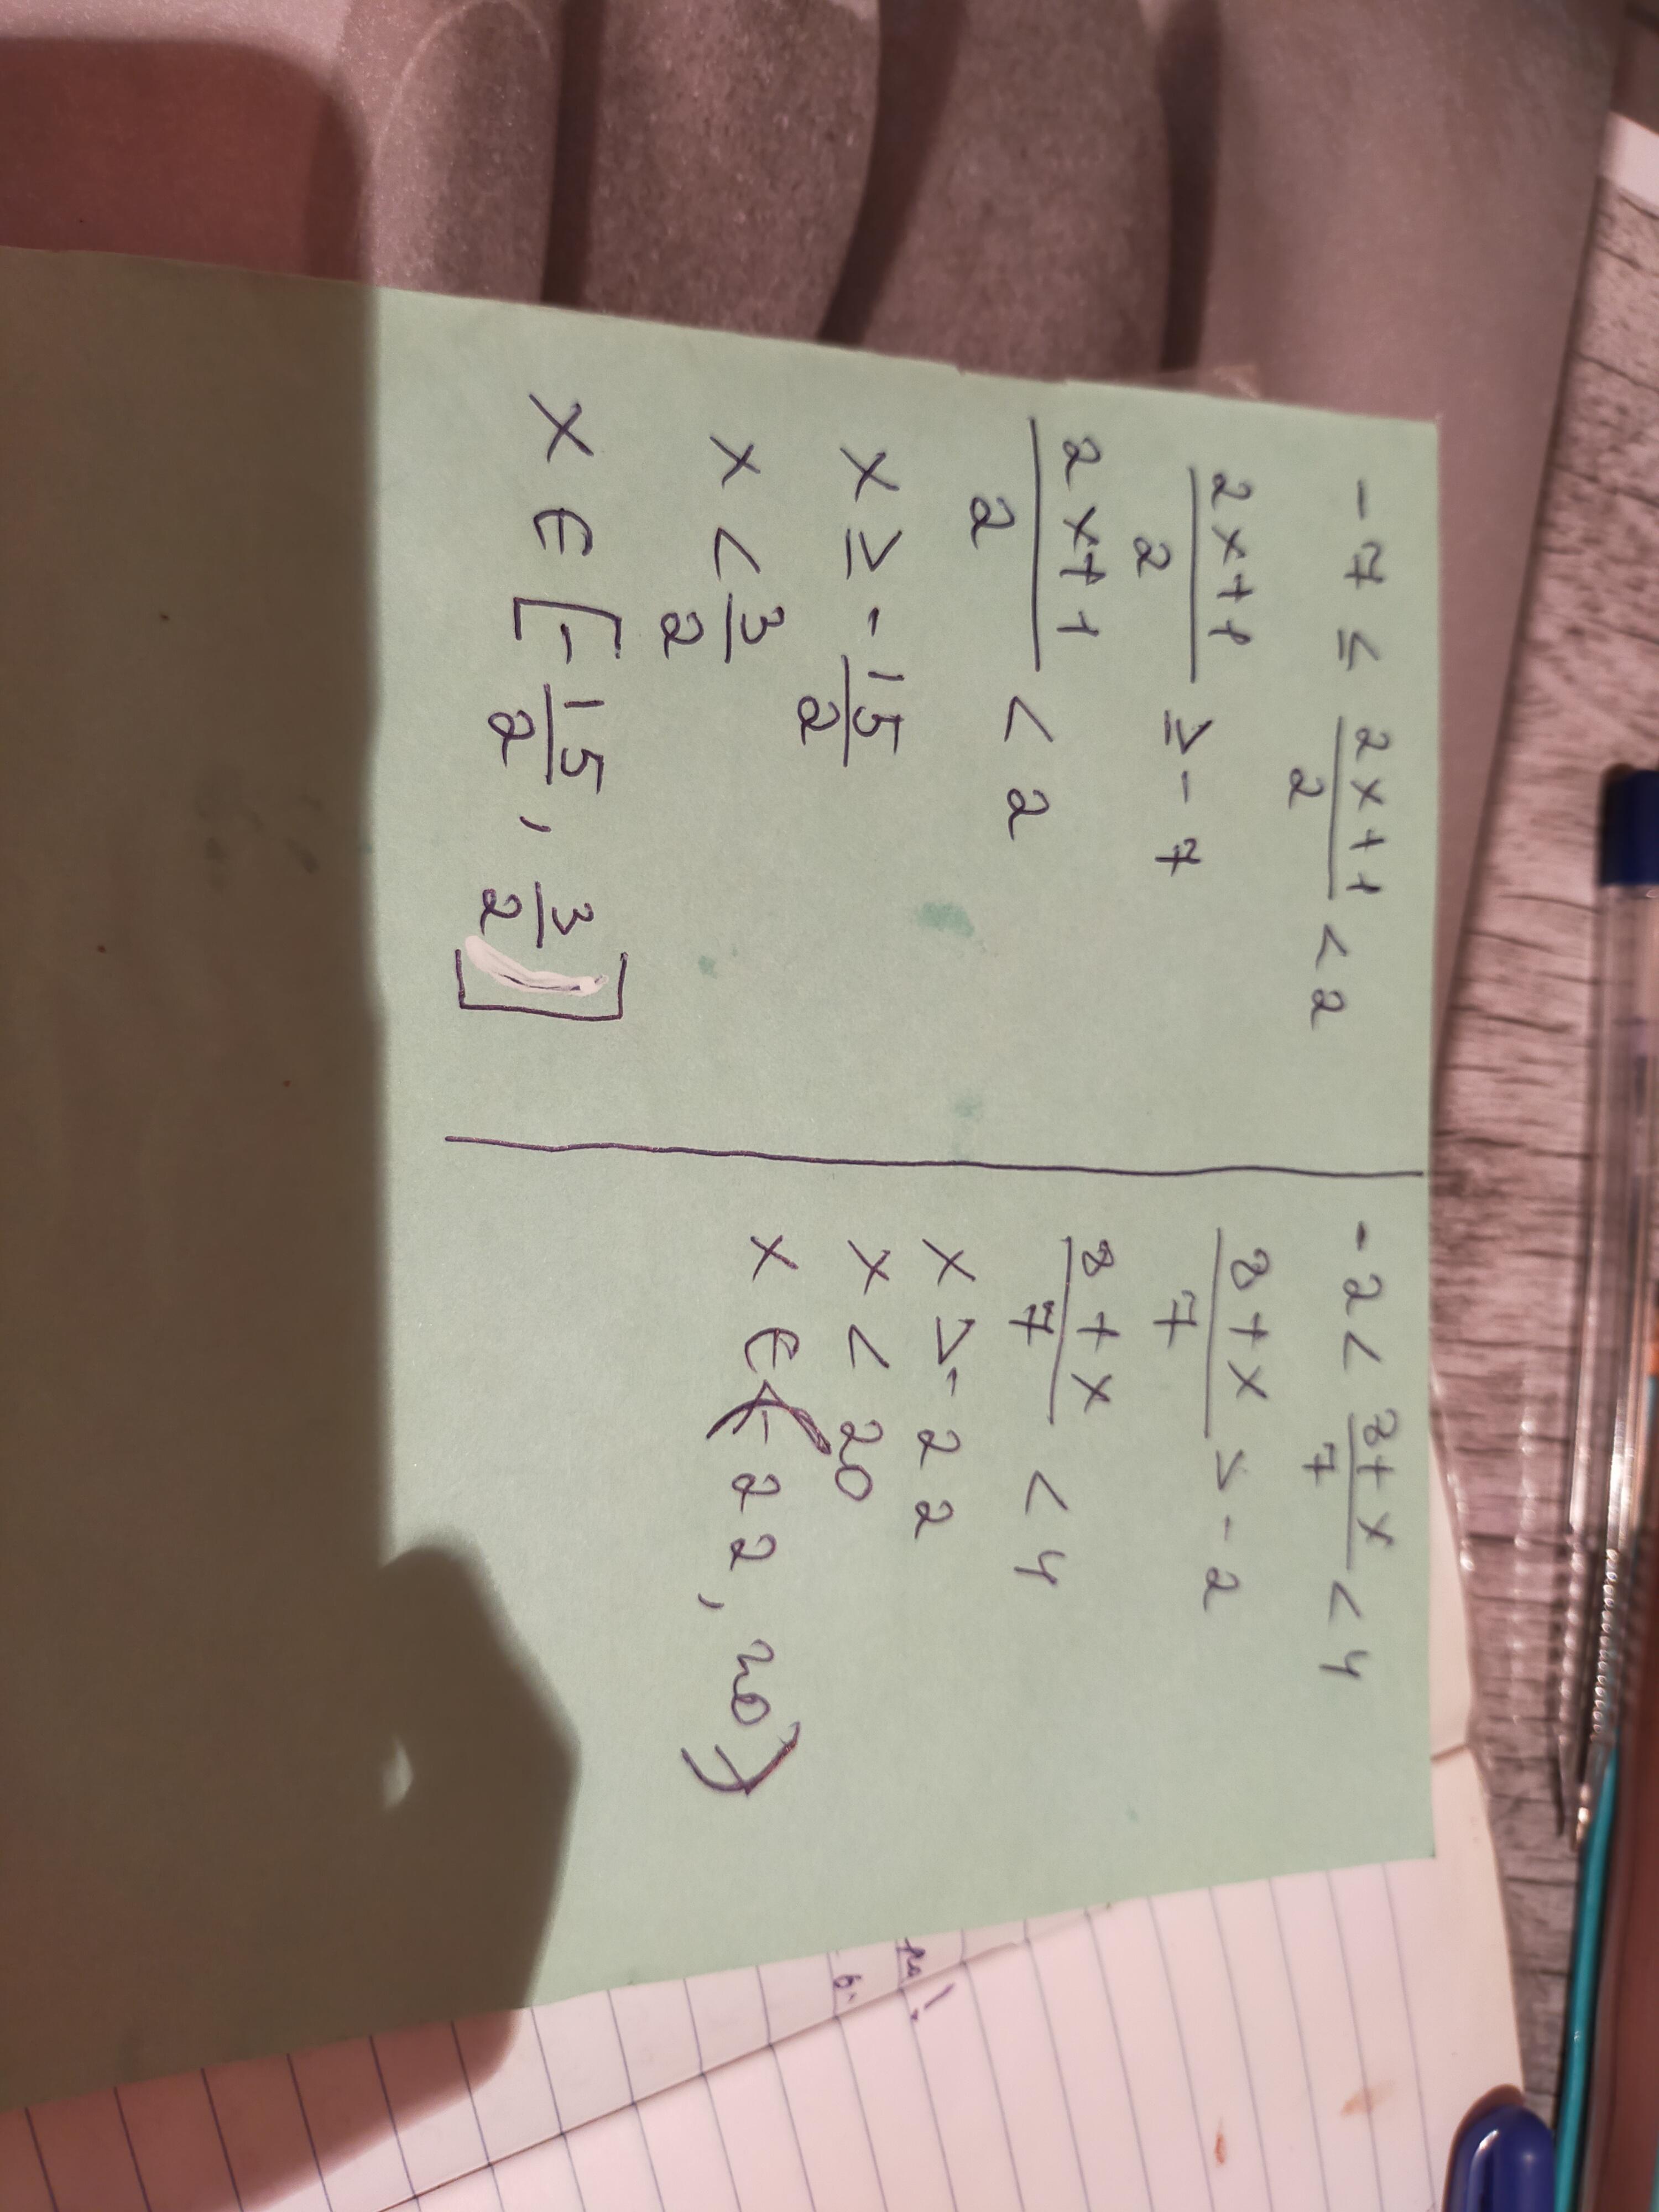 -7 ≤ 2x+1/2 < 2
2x+1/2 ≥ -7
2x+1/2 < 2
x ≥ -15/2
x < 3/2
x ∈ [-15/2, 3/2]
-2 < 8+x/7 < 4
8+x/7 > -2
8+x/7 < 4
x > -22
x < 20
x ∈ (-22, 20)